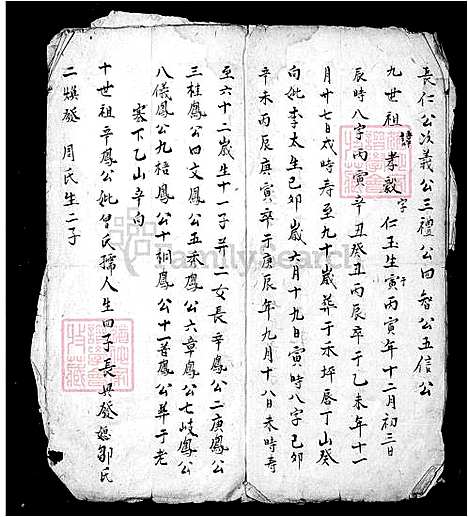 長仁公次義公三禮公四智公五信公
九世祖諱孝毅字仁玉生于寅丙寅年十二月初三日
辰時八字丙寅辛丑癸丑丙辰卒于乙未年十一
月廿七日戌時壽至九十歲葬于禾坪唇丁山癸
向妣李太生己卯歲六月十九日寅時八字己卯
辛未丙辰庚寅卒于庚辰年九月十八日未時壽
至六十二歲生十一子并一女長辛鳳公二庚鳳公
三桂鳳公四文鳳公五禾鳳公六章鳳公七岐鳳公
八儀鳳公九梧鳳公十桐鳳公十一喬鳳公葬于老
寨下乙山辛向
十世祖辛鳳公妣曾氏孺人生四子長興發媳鄒氏
二煥發 周氏生二子
FamilySearch